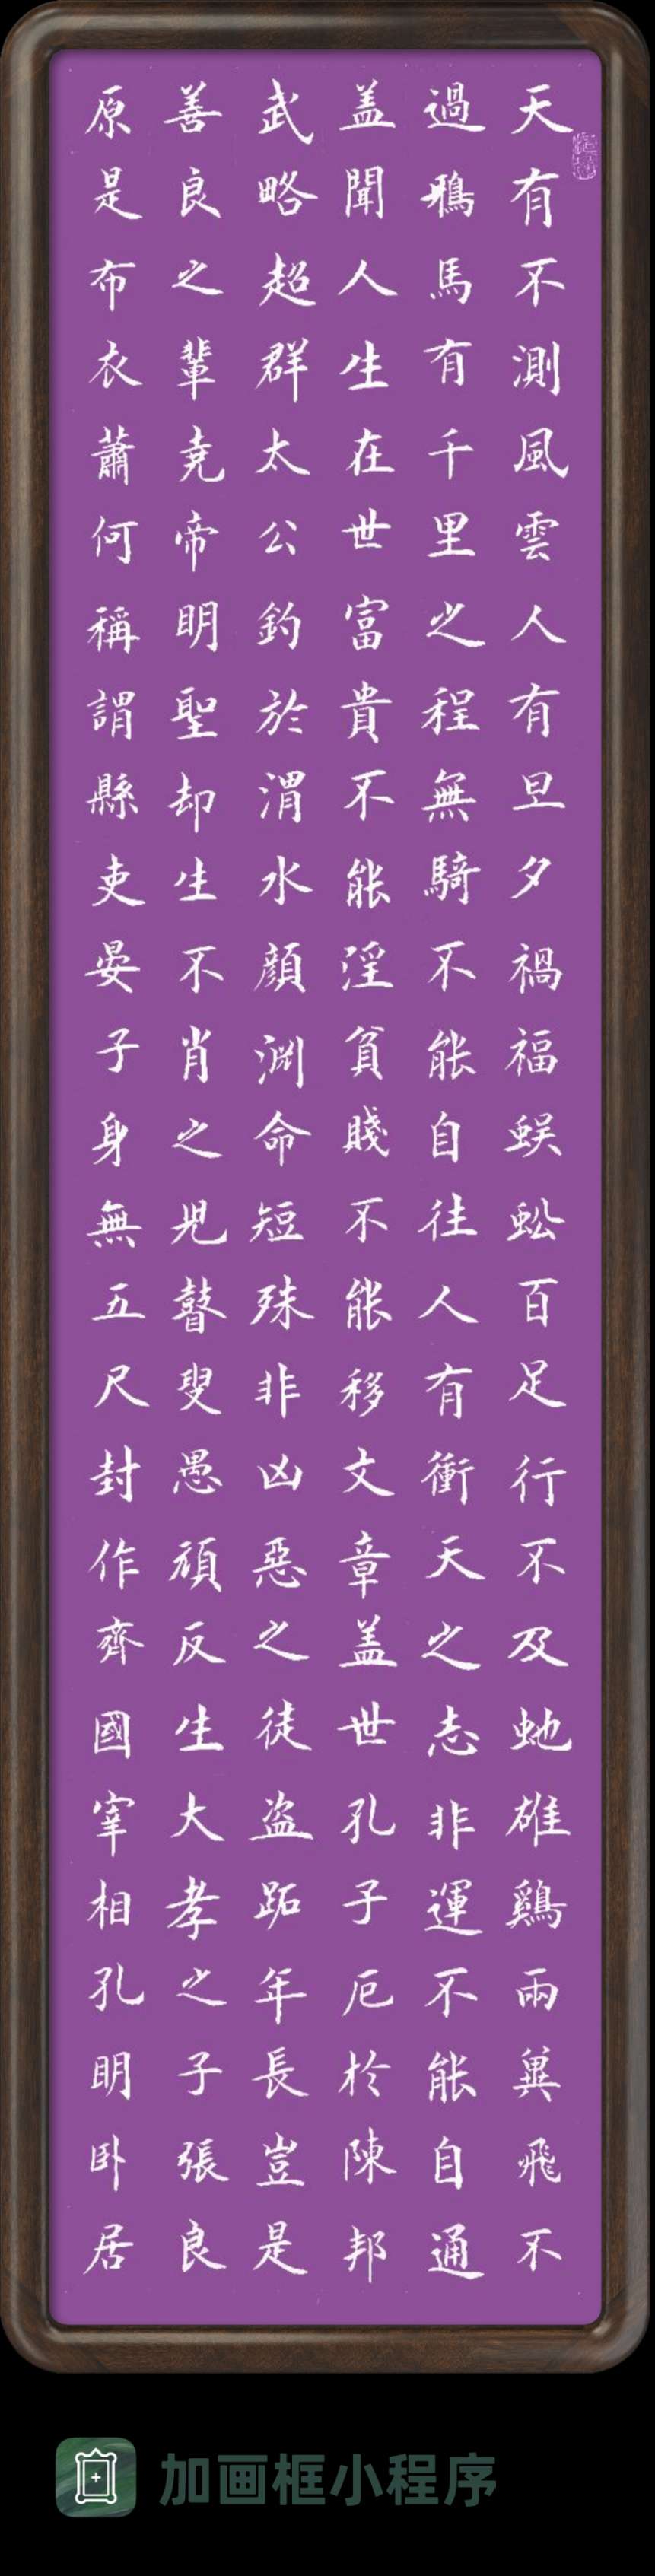 天有不測風雲人有旦夕禍福蜈蚣百足行不及虵雄鷄兩翼飛不
過鴉馬有千里之程無騎不能自往人有衝天之志非運不能自通
盖聞人生在世富貴不能淫貧賤不能移文章盖世孔子厄於陳邦
武略超群太公釣於渭水顔渊命短殊非凶惡之徒盗跖年長豈是
善良之輩尭帝明聖却生不肖之児瞽叟愚頑反生大孝之子張良
原是布衣蕭何稱謂縣吏晏子身無五尺封作齊國宰相孔明卧居
加画框小程序